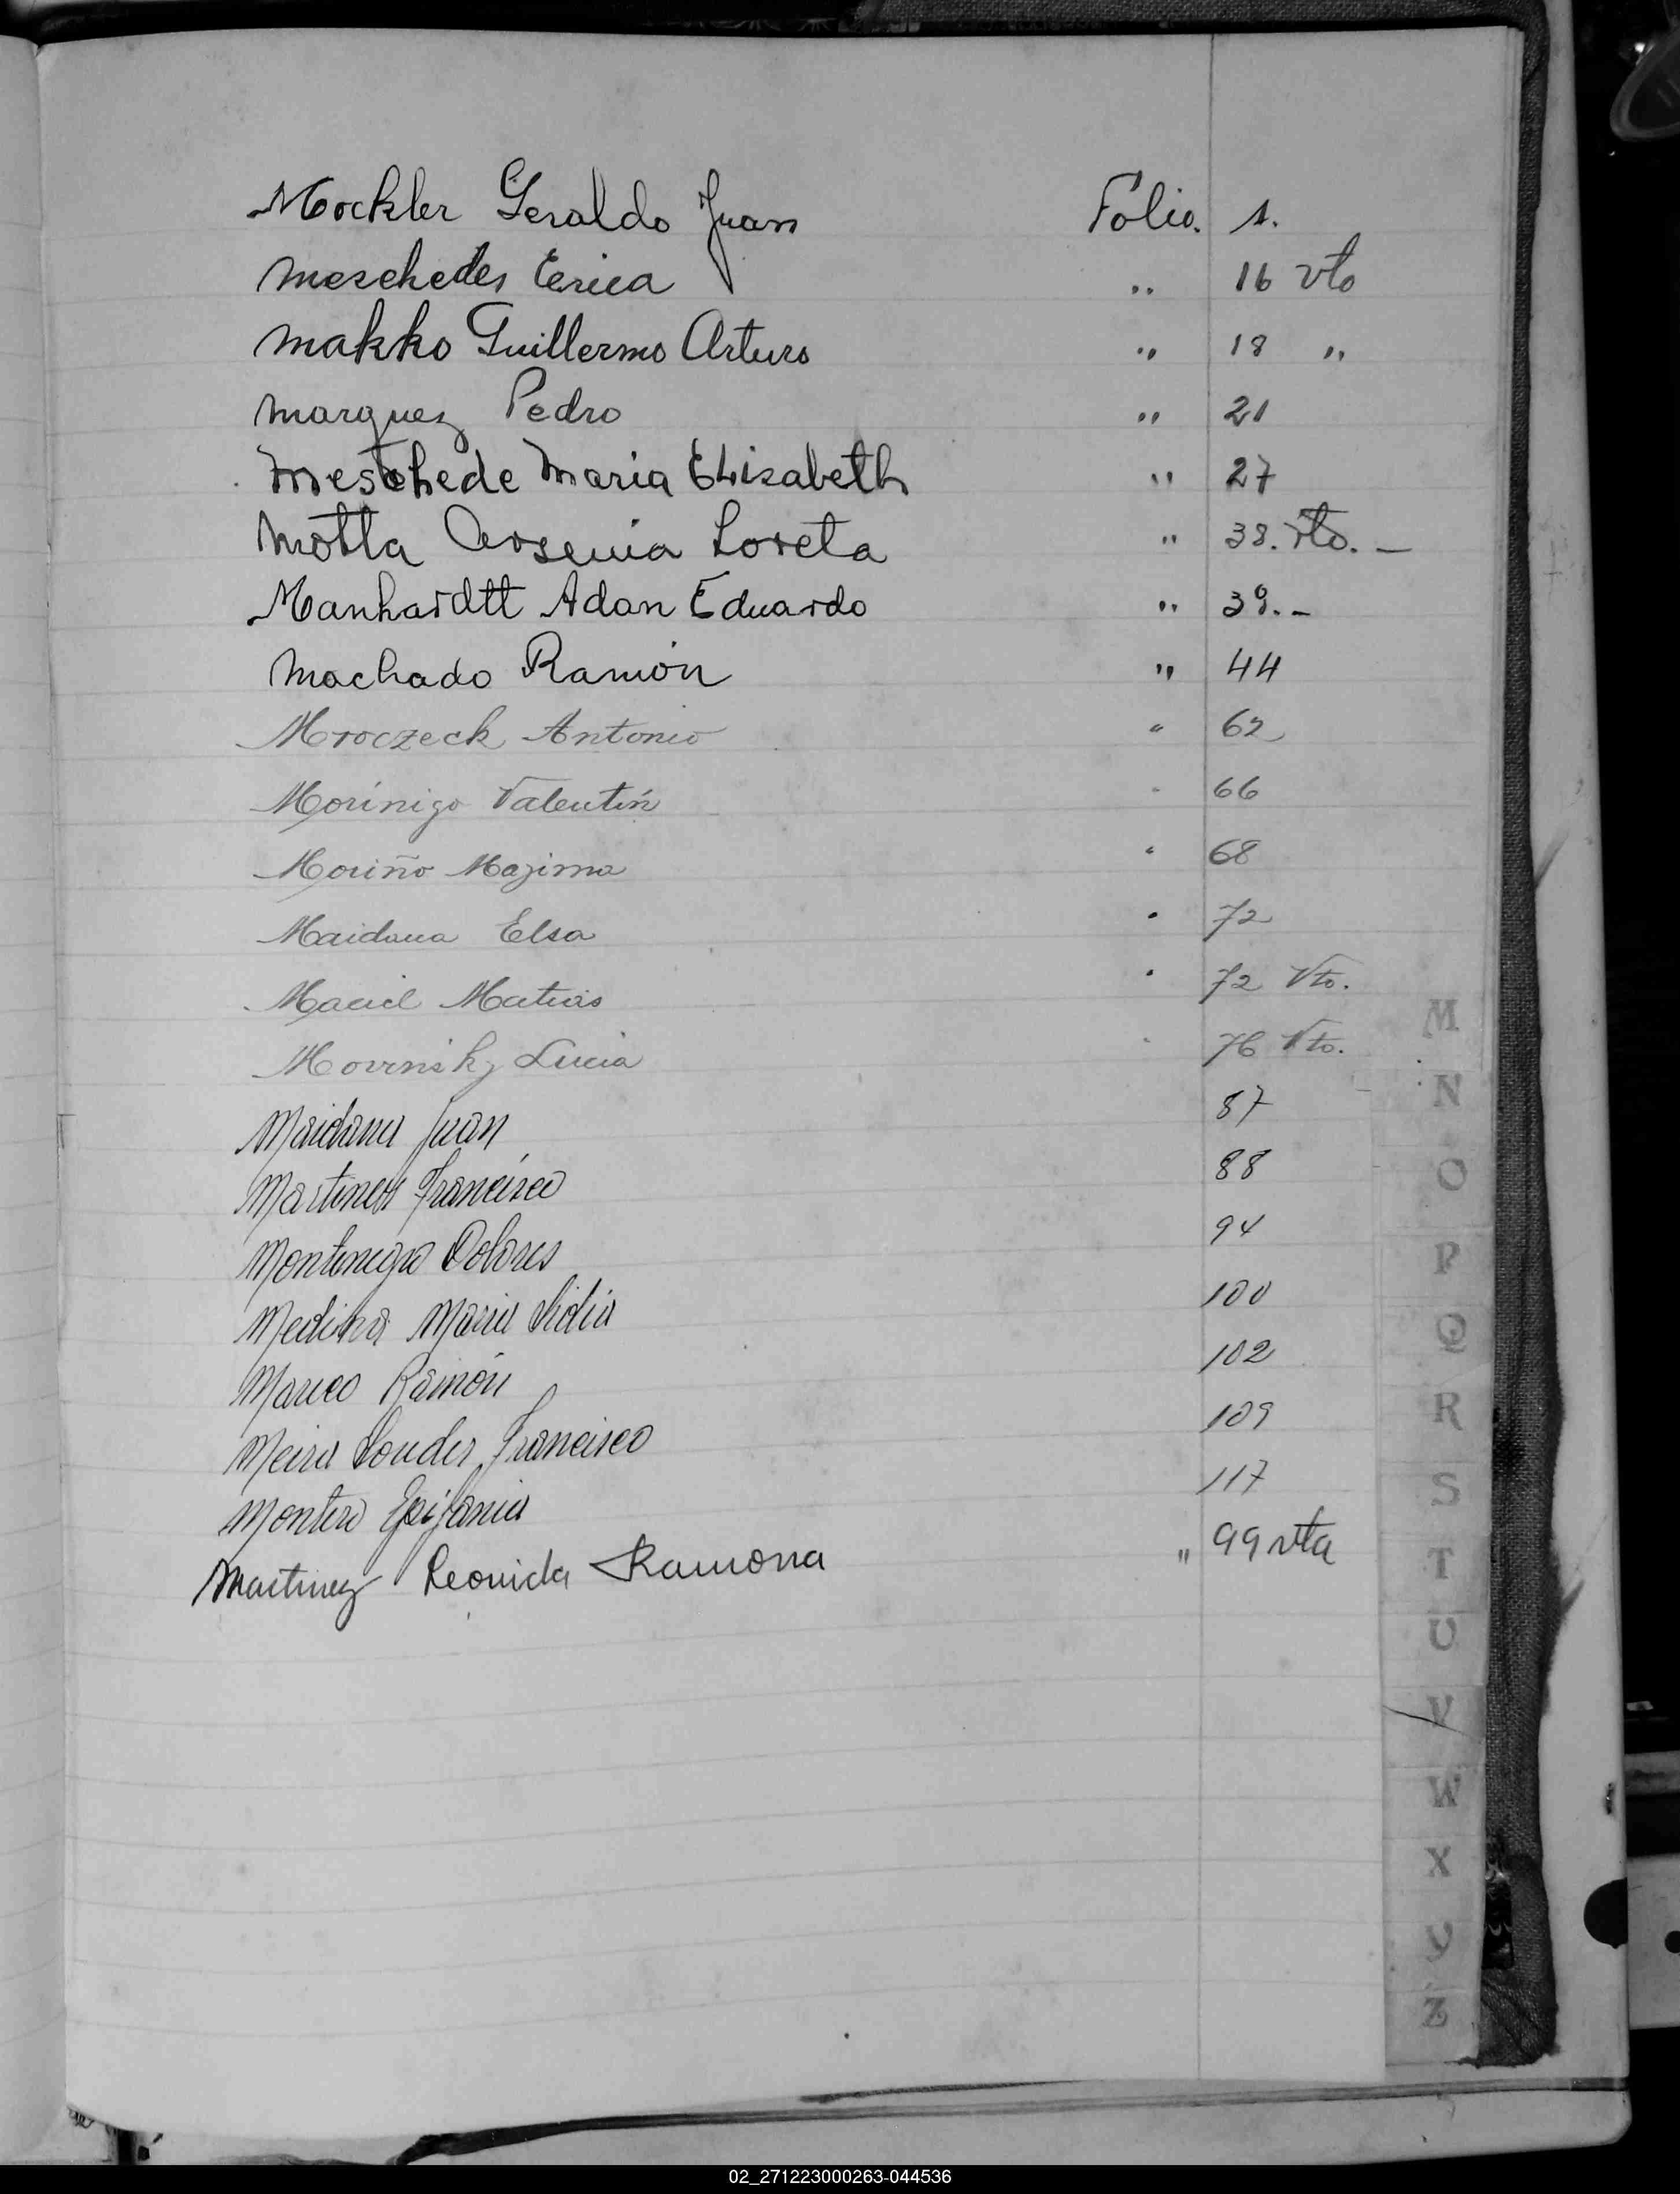 Mockler Geraldo Juan Folio. 1.
Meschedes Erica " 16 vto
Makko Guillermo Arturo " 18 "
Marquez Pedro " 21
Meschede Maria Elisabeth " 27
Motta Arsenia Loreta " 38. vto. —
Manhardtt Adan Eduardo " 39. —
Machado Ramón " 44
Mroczeck Antonio " 62
Morínigo Valentín " 66
Moriño Maxima " 68
Maidana Elsa " 72
Maciel Matias " 72 Vto.
Lucia " 76 Vto.
Maidana Juan 87
Martinez Francisco 88
Montenegro Dolores 94
Medina Maria Lidia 100
Mareco Ramón 102
Meira Francisco 109
Montero Epifania 117
Martinez Leonida Ramona " 99 vta
M
N
O
P
Q
R
S
T
U
V
W
X
Y
Z
02_271223000263-044536